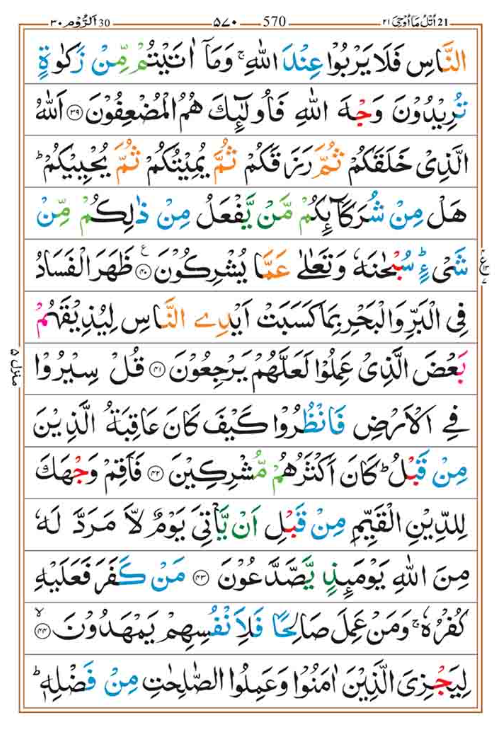 اُتْلُ مَآ اُوْحِیَ ۲۱ 21 570 ۵۷۰ 30 اَلرُّوْم ۳۰
النَّاسِ فَلَا یَرْبُوْا عِنْدَ اللّٰهِ ۚ وَمَاۤ اٰتَیْتُمْ مِّنْ زَكٰوةٍ
تُرِیْدُوْنَ وَجْهَ اللّٰهِ فَاُولٰٓئِكَ هُمُ الْمُضْعِفُوْنَ ۝۳۹ اَللّٰهُ
الَّذِیْ خَلَقَكُمْ ثُمَّ رَزَقَكُمْ ثُمَّ یُمِیْتُكُمْ ثُمَّ یُحْیِیْكُمْ ؕ
هَلْ مِنْ شُرَكَآىِٕكُمْ مَّنْ یَّفْعَلُ مِنْ ذٰلِكُمْ مِّنْ
شَیْءٍ ؕ سُبْحٰنَهٗ وَتَعٰلٰی عَمَّا یُشْرِكُوْنَ ۝۴۰ ع ظَهَرَ الْفَسَادُ
فِی الْبَرِّ وَالْبَحْرِ بِمَا كَسَبَتْ اَیْدِی النَّاسِ لِیُذِیْقَهُمْ
بَعْضَ الَّذِیْ عَمِلُوْا لَعَلَّهُمْ یَرْجِعُوْنَ ۝۴۱ قُلْ سِیْرُوْا
فِی الْاَرْضِ فَانْظُرُوْا كَیْفَ كَانَ عَاقِبَةُ الَّذِیْنَ
مِنْ قَبْلُ ؕ كَانَ اَكْثَرُهُمْ مُّشْرِكِیْنَ ۝۴۲ فَاَقِمْ وَجْهَكَ
لِلدِّیْنِ الْقَیِّمِ مِنْ قَبْلِ اَنْ یَّاْتِیَ یَوْمٌ لَّا مَرَدَّ لَهٗ
مِنَ اللّٰهِ یَوْمَىِٕذٍ یَّصَّدَّعُوْنَ ۝۴۳ مَنْ كَفَرَ فَعَلَیْهِ
كُفْرُهٗ ۚ وَمَنْ عَمِلَ صَالِحًا فَلِاَنْفُسِهِمْ یَمْهَدُوْنَ ۝۴۴ ۙ
لِیَجْزِیَ الَّذِیْنَ اٰمَنُوْا وَعَمِلُوا الصّٰلِحٰتِ مِنْ فَضْلِهٖ ؕ
منزل ۵